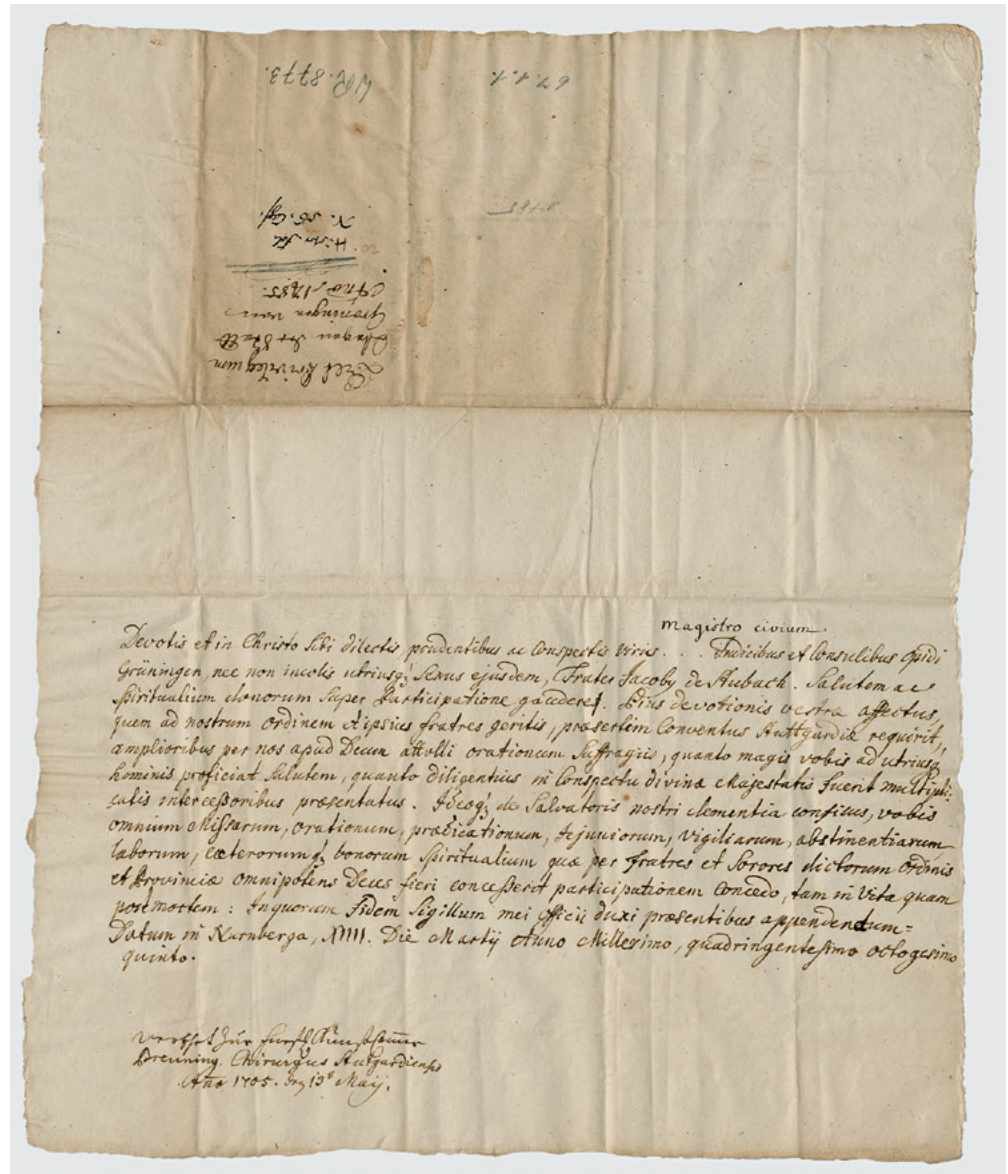 WR. 8773.
67.1.1.
1485
Hister fol
N. 56.
Privilegium
wegen der Statt
Groningen von
Año 1485.
magistro civium
Devotis et in Christo sibi dilectis prudentibus ac Conspectis Viris . . . Judicibus et Consulibus opidi
Grüningen, nec non incolis utriusq; Sexus ejusdem, Frater Jacoby de Aubach. Salutem ac
Spiritualium donorum super Participatione gaudere. Pius devotionis vestræ affectus,
quem ad nostrum Ordinem et ipsius fratres geritis, præsertim Conventus Stuttgardiæ requirit,
amplioribus per nos apud Deum attolli orationum Suffragiis, quanto magis vobis ad utriusq
hominis proficiat Salutem, quanto diligentius in Conspectu divinæ Majestatis fuerit multipli:
catis interceßoribus præsentatus. Ideoq; de Salvatoris nostri clementia confisus, vobis
omnium Missarum, orationum, prædicationum, jejuniorum, vigiliarum, abstinentiarum
laborum, cæterorumq; bonorum Spiritualium quæ per fratres et Sorores dictorum Ordinis
et Provinciæ omnipotens Deus fieri conceßerit participationem Concedo, tam in Vita quam
post mortem: In quorum Fidem Sigillum mei Officii duxi præsentibus appendendum=
Datum in Nurnberga, XIIII. Die Martij Anno Millesimo, quadringentesimo octogesimo
quinto.
verehrt zur fürstl Kunst Cammer
Breuning Chirurgus Stutgardiensis
Año 1705. den 13 Maij.